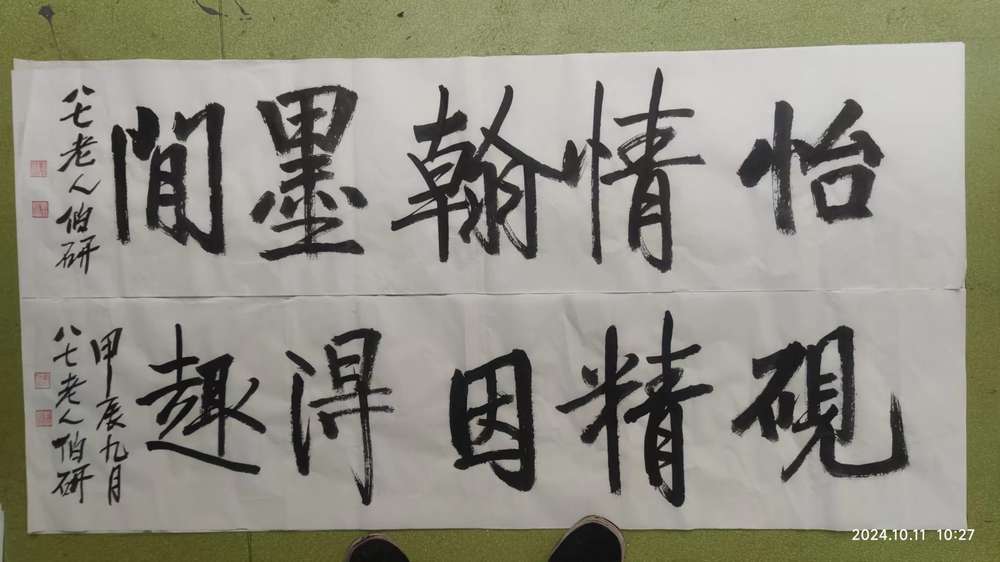 怡情翰墨閒
八七老人伯研
硯精因得趣
甲辰九月
八七老人伯研
2024.10.11 10:27